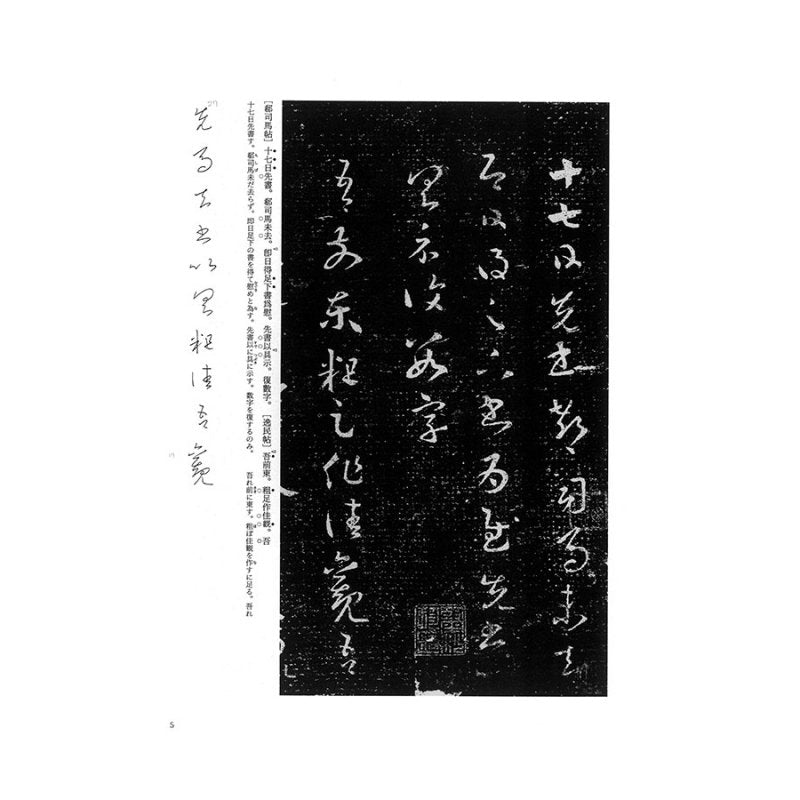 十七日先書郗司馬未去
即日得足下書為慰先書
以具示復數字
吾前東粗足作佳觀吾
[郗司馬帖] 十七日先書。郗司馬未去。即日得足下書爲慰。先書以具示。復數字。 [逸民帖] 吾前東。粗足作佳觀。吾
十七日先書す。郗司馬未だ去らず。即日足下の書を得て慰めと為す。先書以に具に示す。数字を復するのみ。 吾れ前に東す。粗ぼ佳観を作すに足る。吾れ
先馬去書以具粗佳吾觀
5